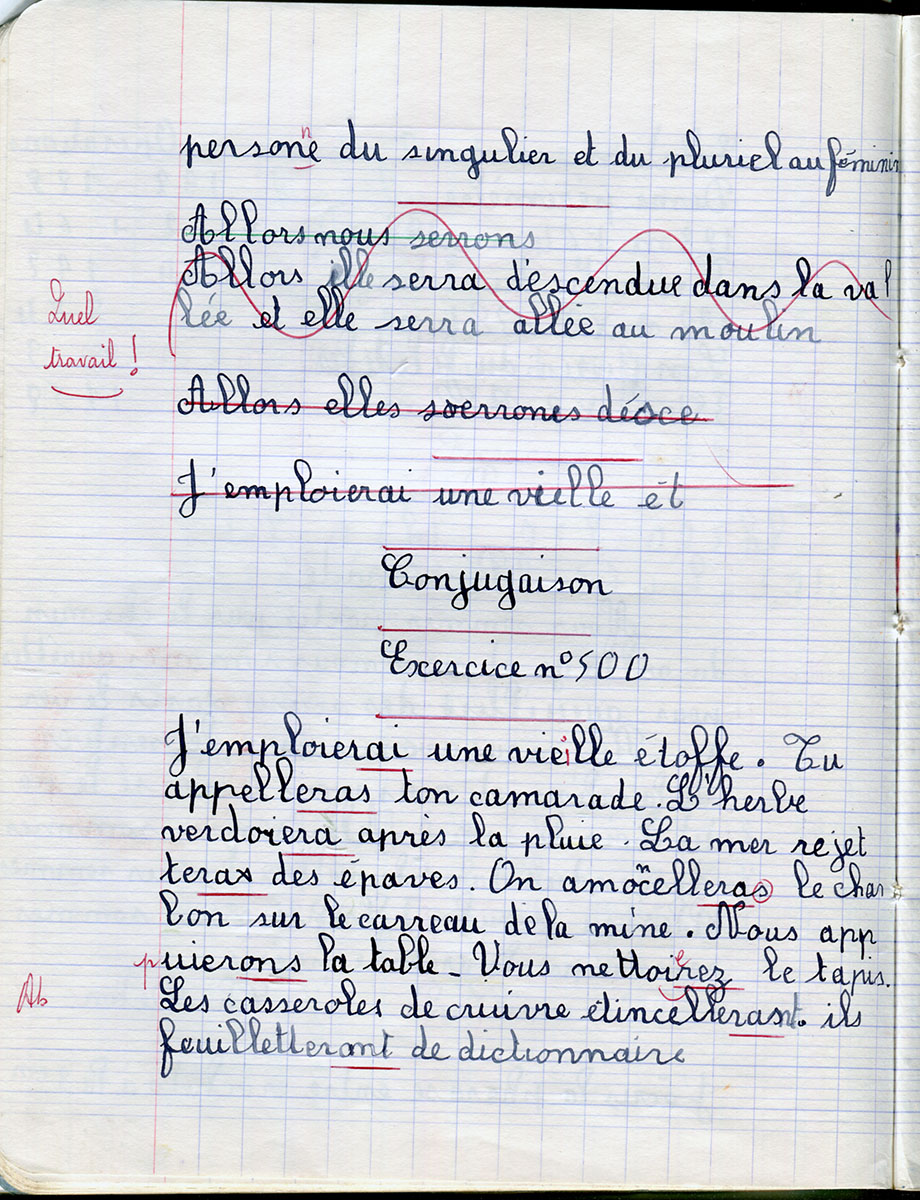 personne du singulier et du pluriel au féminin
Allors nous serrons
Allors ille serra déscendue dans la val
lée et elle serra allée au moulin
Quel
travail !
Allors elles serrones désce
J'emploierai une vielle ét
Conjugaison
Exercice n° 500
J'emploierai une vieille étoffe. Tu
appelleras ton camarade. L'herbe
verdoiera après la pluie. La mer rejet
tera des épaves. On amoncelleras le char
bon sur le carreau de la mine. Nous app
puierons la table - Vous nettoierez le tapis.
Ab
Les casseroles de cruivre étincellerant. ils
feuilletteront de dictionnaire